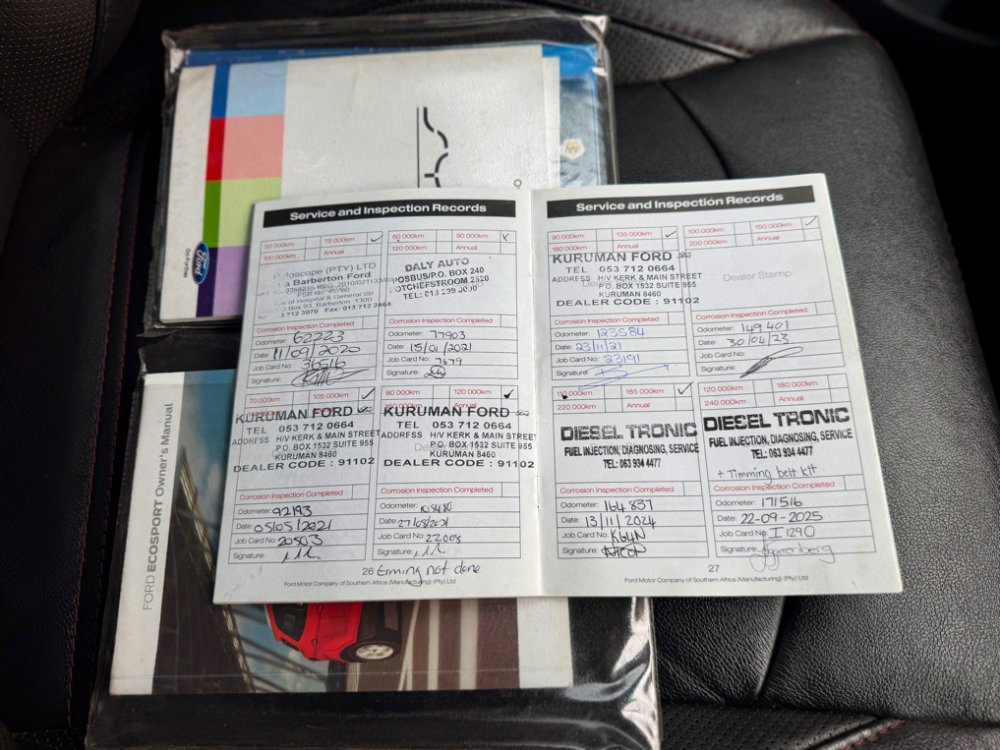 Ford
Service and Inspection Records
50 000km 75 000km
100 000km Annual
(PTY) LTD
Barberton Ford
of Hospital & General Str
Box 93, Barberton, 1300
Corrosion Inspection Completed
Odometer: 62223
Date: 11/09/2020
Job Card No: 36516
Signature:
60 000km 90 000km
120 000km Annual
DALY AUTO
POSBUS/P.O. BOX 240
POTCHEFSTROOM 2520
Corrosion Inspection Completed
Odometer: 77903
Date: 15/01/2021
Job Card No: 7679
Signature:
70 000km 105 000km
KURUMAN FORD
TEL 053 712 0664
ADDRESS H/V KERK & MAIN STREET
P.O. BOX 1532 SUITE 955
KURUMAN 8460
DEALER CODE : 91102
Corrosion Inspection Completed
Odometer: 92193
Date: 05/05/2021
Job Card No: 20503
Signature:
80 000km 120 000km
Annual
KURUMAN FORD
TEL 053 712 0664
ADDRESS H/V KERK & MAIN STREET
P.O. BOX 1532 SUITE 955
KURUMAN 8460
DEALER CODE : 91102
Corrosion Inspection Completed
Odometer:
Date: 27/08/2021
Job Card No: 22008
Signature:
26 timing not done
Ford Motor Company of Southern Africa (Manufacturing) (Pty) Ltd
Service and Inspection Records
90 000km 135 000km
180 000km Annual
KURUMAN FORD
TEL 053 712 0664
ADDRESS H/V KERK & MAIN STREET
P.O. BOX 1532 SUITE 955
KURUMAN 8460
DEALER CODE : 91102
Corrosion Inspection Completed
Odometer: 123584
Date: 23/11/21
Job Card No: 23191
Signature:
100 000km 150 000km
200 000km Annual
Dealer Stamp
Corrosion Inspection Completed
Odometer: 149 401
Date: 30/04/23
Job Card No:
Signature:
110 000km 165 000km
220 000km Annual
DIESEL TRONIC
FUEL INJECTION, DIAGNOSING, SERVICE
TEL: 063 934 4477
Corrosion Inspection Completed
Odometer: 164 837
Date: 13/11/2024
Job Card No: K64N
Signature:
120 000km 180 000km
240 000km Annual
DIESEL TRONIC
FUEL INJECTION, DIAGNOSING, SERVICE
TEL: 063 934 4477
+ Timming belt kit
Corrosion Inspection Completed
Odometer: 171516
Date: 22-09-2025
Job Card No: I 1290
Signature:
27
Ford Motor Company of Southern Africa (Manufacturing) (Pty) Ltd
FORD ECOSPORT Owner's Manual